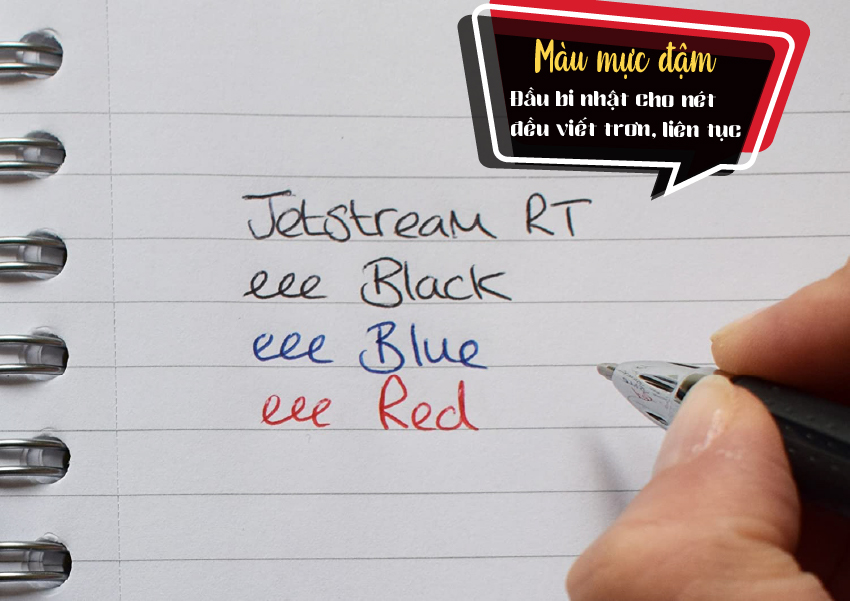 Màu mực đậm
Đầu bi nhật cho nét
đều viết trơn, liên tục
Jetstream RT
eee Black
eee Blue
eee Red